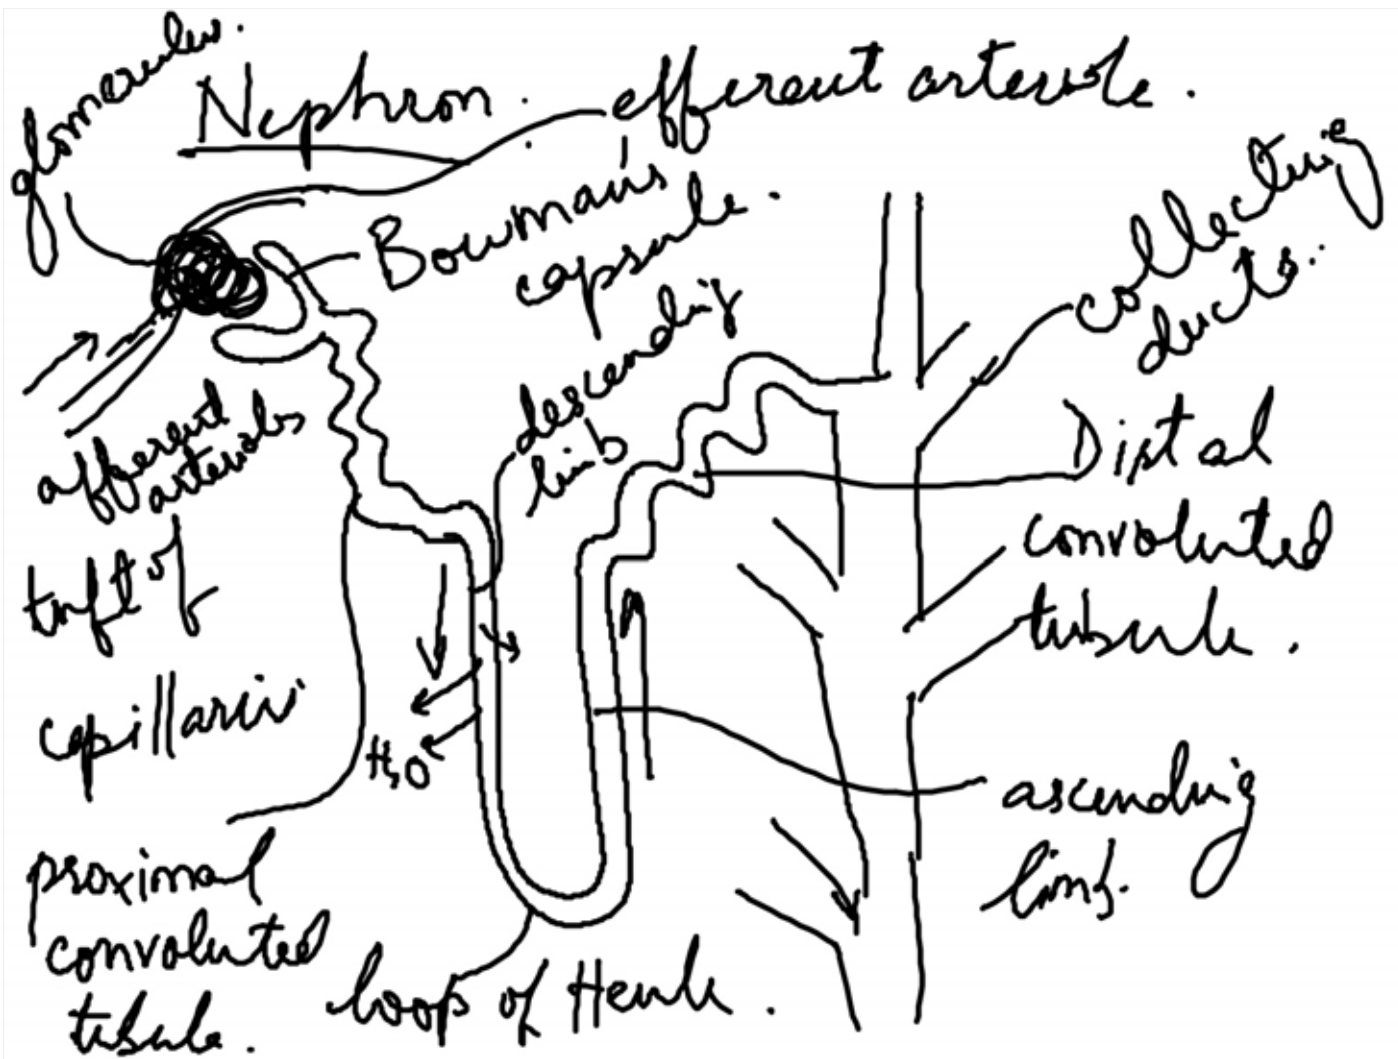 glomerulus.
Nephron.
efferent arteriole.
Bowman's
capsule.
collecting
ducts.
descending
limb
afferent
arterioles
tuft of
capillaries
Distal
convoluted
tubule.
H2O
ascending
limb.
proximal
convoluted
tubule.
loop of Henle.